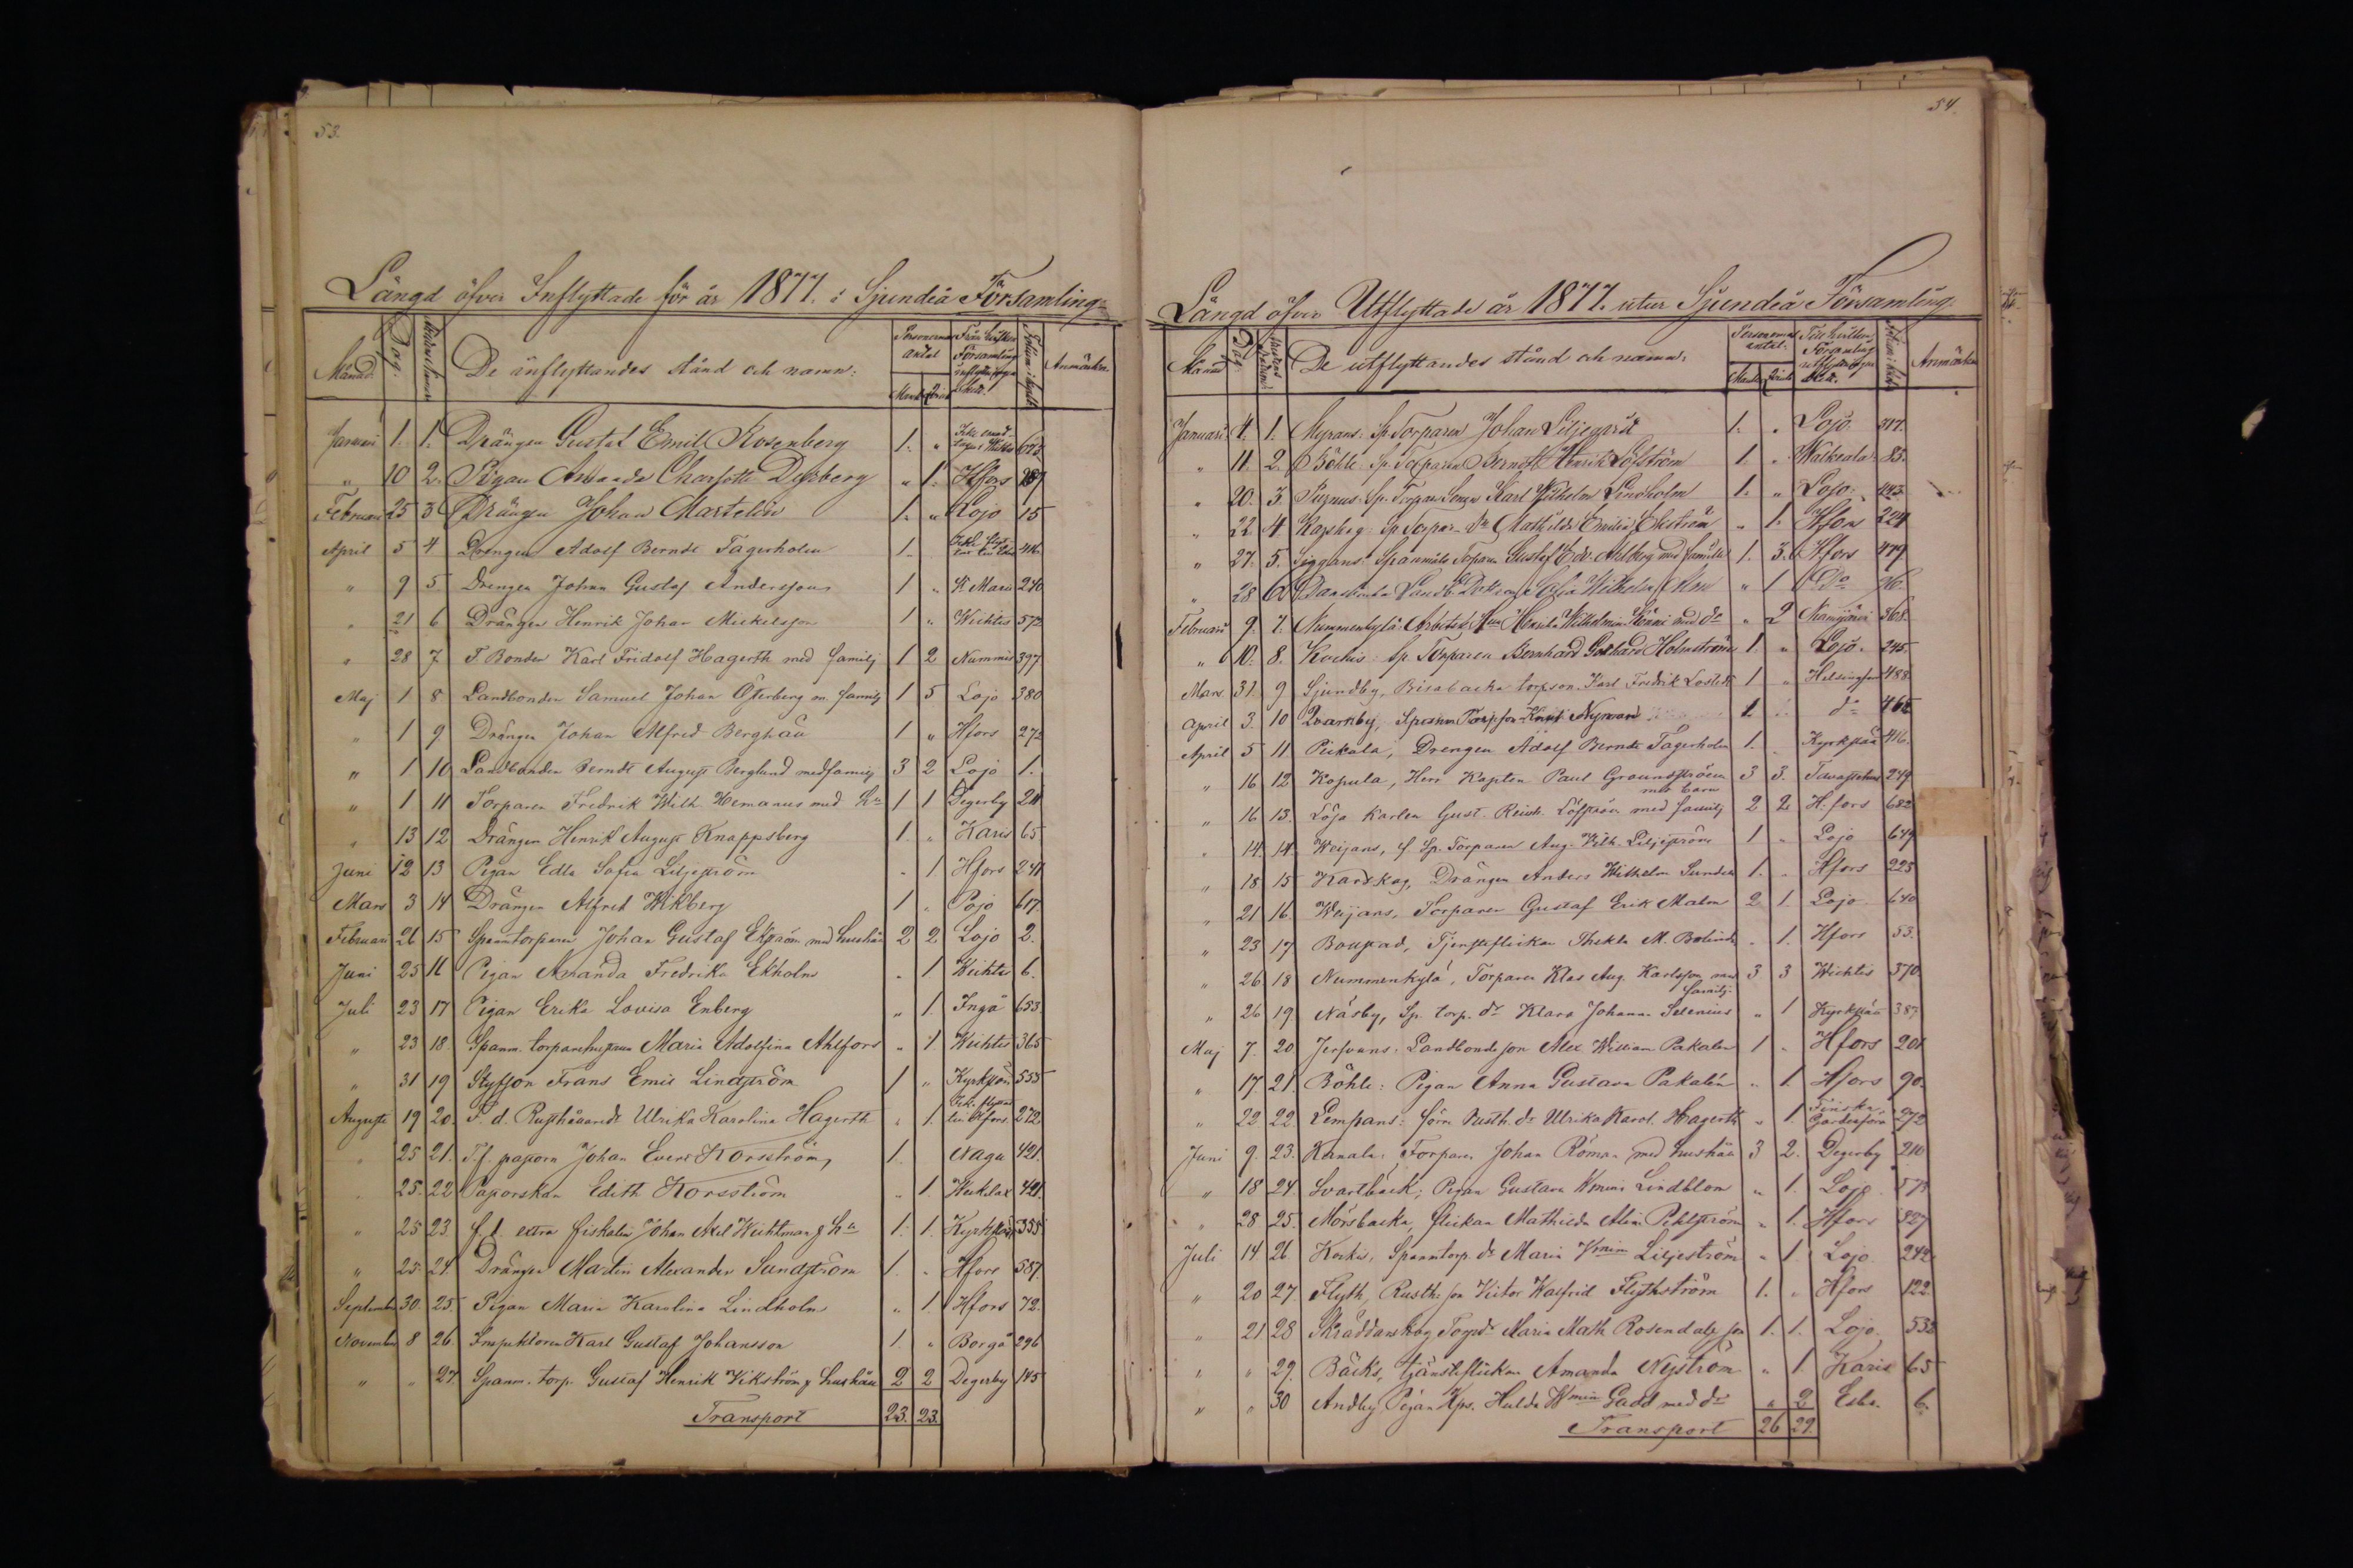 53.
Längd öfver Inflyttade för år 1877. i Sjundeå Församling
Månad. Dag. De inflyttandes stånd och namn: Personernas antal Från hvilken Församling inflyttningen skett. Anmärkn.
Mank. Qvink.
Januari 1. 1. Drängen Gustaf Emil Rosenberg 1. "
" 10 2. Pigan Amanda Charlotta Dyrberg " 1. Hfors
Februari 25 3 Drängen Johan Martelin 1. " Lojo 15
April 5 4 Drengen Adolf Berndt Fagerholm 1. 416
" 9 5 Drengen Johan Gustaf Andersson 1 " 240
" 21 6 Drängen Henrik Johan Mickelsson 1 " Wichtis 572
" 28 7 F. Bonden Karl Fridolf Hagerth med familj 1 2 Nummis 397
Maj 1 8 Landbonden Samuel Johan Österberg m. familj 1 5 Lojo 380
" 1 9 Drängen Johan Alfred Berghäll 1 " Hfors 272
" 1 10 Landbonden Berndt August Berglund med familj 3 2 Lojo 1.
" 1 11 Torparen Fredrik Wilh. Hemanus med Hu 1 1 Degerby 211
" 13 12 Drängen Henrik August Knappsberg 1. " Karis 65
Juni 12 13 Pigan Edla Sofia Liljeström " 1 Hfors 241
Mars 3 14 Drängen Alfred Wikberg 1 " Pojo 617.
Februari 26 15 Spanntorparen Johan Gustaf Ekström med hushåll 2 2 Lojo 2.
Juni 25 16 Pigan Amanda Fredrika Ekholm " 1 Wichtis 6.
Juli 23 17 Pigan Erika Lovisa Enberg " 1. Ingå 653
" 23 18. Spanm. torparehustrun Maria Adolfina Ahlfors " 1 Wichtis 365
" 31 19 Styfson Frans Emil Lindström 1 " Kyrkslätt 555
Augusti 19 20. F. d. Rusthåll. dr Ulrika Karolina Hagerth " 1. 272
" 25 21. Johan Evert Korsström, 1. Nagu 421.
" 25. 22 Edith Korsström " 1. 421.
" 25 23. f. d. extra fiskalen Johan Axel Wichtman & Hu 1. 1. Kyrkslätt 355
" 25 24. Drängen Martin Alexander Sundström 1. " Hfors 587.
September 30. 25. Pigan Maria Karolina Lindholm " 1. Hfors 72.
November 8 26. Inspektoren Karl Gustaf Johansson 1. " Borgå 296
" " 27 Spanm. torp. Gustaf Henrik Vikström & hushåll 2 2 Degerby 145
Transport 23. 23.
54.
Längd öfver Utflyttade år 1877. utur Sjundeå Församling.
Månad Dag. De utflyttandes stånd och namn: Personernas antal. Till hvilken Församling utflyttningen skett. Anmärkn
Mank. Qvink.
Januari 4. 1. Myrans: Sp. Torparen Johan Liljeqvist 1. " Lojo. 317.
" 11. 2. Böhle. Sp. Torparen Berndt Henrik Löfström 1. " Walkeala. 85.
" 20. 3. Sp. Torpare Sonen Karl Wilhelm Lindholm 1. " Lojo. 443
" 22 4. Karskog. Sp. Torpar- Dr Mathilda Emilia Ekström " 1. Hfors 224
" 27. 5. Siggans: Spanmåls Torparen Gustaf Edv. Ahlberg med familj 1. 3. Hfors 479
" 28 6 Wilhelm " 1 Do
Februari 9. 7. Nummenkylä: Arbetsk. med dr " 2 368.
" 10. 8. Kockis: Sp. Torparen Bernhard Gothard Holmström 1. " Lojo. 245.
Mars 31. 9 Sjundby, Bisabacka torpson Karl Fredrik 1 " Helsingfors 488
April 3. 10 Qvarnby, Spannm. Torpson Knut Nyman 1. do 462
April 5 11 Pickala, Drengen Adolf Berndt Fagerholm 1. " Kyrkslätt 416.
" 16 12 Kopula, Herr Kapten Paul Graunström med barn 3 3. Tavastehus 249
" 16. 13. Löjo Karlen Gust. Reinh. Löfström med familj 2 2. H:fors 682
" 14. 14. Weijans, f. Sp. Torparen Aug. Wilh. Liljeström 1 " Lojo 649
" 18 15 Karskog, Drängen Anders Wilhelm Sundell 1. " Hfors 225
" 21 16. Weijans, Torparen Gustaf Erik Malm 2 1. Lojo 640
" 23 17 Boustad, Tjensteflickan Thekla M. Bolinder " 1. Hfors 53.
" 26 18 Nummenkylä, Torparen Klas Aug. Karlsson med familj. 3 3 Wichtis 370.
" 26 19 Näsby, Sp. torp. dr Klara Johanna Selenius " 1 Kyrkslätt 387.
Maj 7. 20 Jerfvans: Landbondeson Alex. William Pakalén 1 " Hfors 201
" 17. 21. Böhle: Pigan Anna Gustava Pakalén " 1. Hfors 90.
" 22 22. Lempans: förra Rusth. dr Ulrika Karol. Hagerth " 1. Finska Gardesförs. 272
Juni 9. 23. Kanala: Torparen Johan Roman med hushåll 3 2. Degerby 210
" 18 24. Svartbäck; Pigan Gustava Wmina Lindblom " 1. Lojo 57
" 28 25. Mörsbacka, flickan Mathilda Alina Pehlström " 1. Hfors 327
Juli 14 26. Kockis, Spanntorp. dr Maria Vmina Liljeström " 1 Lojo. 242
" 20 27. Flyth, Rusth. son Victor Walfrid Flythström 1. " Hfors 122.
" 21 28 Skräddarskog Torpdr Maria Math. Rosendahl 1. 1. Lojo. 532
" " 29. Bäcks, tjänsteflickan Amanda Nyström " 1. Karis 65
" " 30 Andby Pigan Hps. Hulda Wmina Gadd med dr " 2 Esbo. 6.
Transport 26 29.